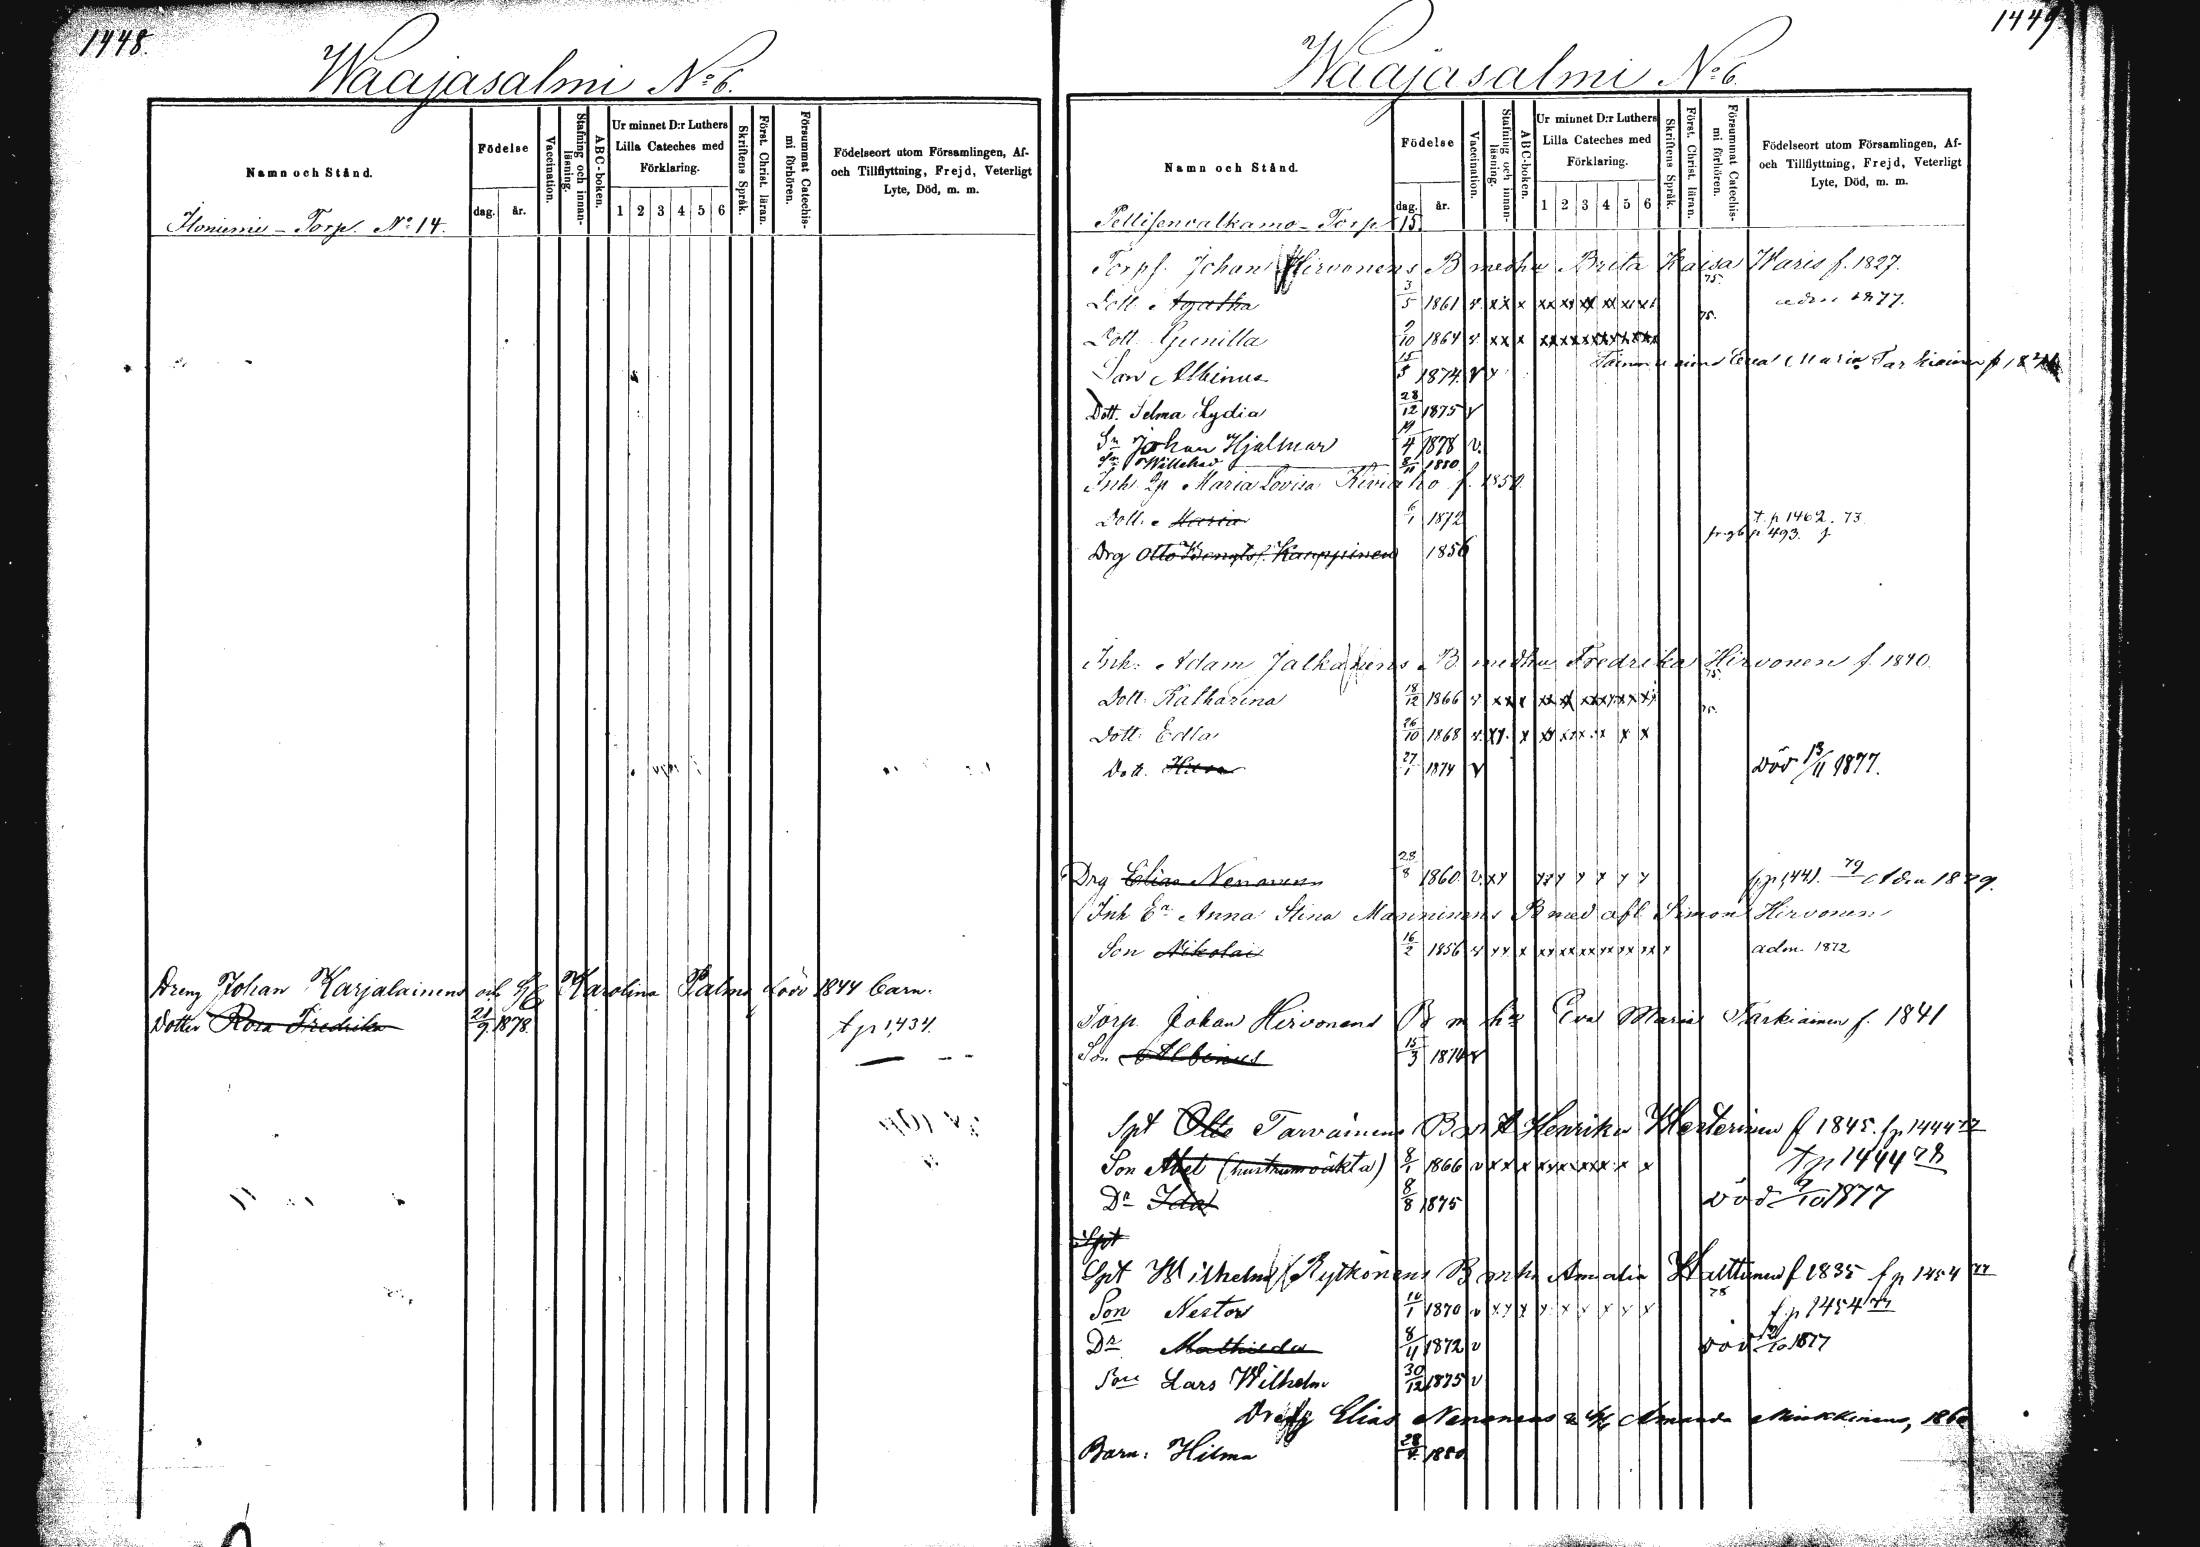 1448.
Waajasalmi No 6.
Namn och Stånd.
Födelse
dag.
år.
Vaccination.
Stafning och innanläsning.
ABC-boken.
Ur minnet D:r Luthers Lilla Cateches med Förklaring.
1 2 3 4 5 6
Skriftens Språk.
Först. Christ. läran.
Försummat Catechismi förhören.
Födelseort utom Församlingen, Af- och Tillflyttning, Frejd, Veterligt Lyte, Död, m. m.
Torp. No 14.
Dreng Johan Karjalainens och Karolina Palm 1844 barn.
Dotter Rosa Fredrika 21/9 1878. t p 1,434.
1449.
Waajasalmi No 6.
Namn och Stånd.
Födelse
dag.
år.
Vaccination.
Stafning och innanläsning.
ABC-boken.
Ur minnet D:r Luthers Lilla Cateches med Förklaring.
1 2 3 4 5 6
Skriftens Språk.
Först. Christ. läran.
Försummat Catechismi förhören.
Födelseort utom Församlingen, Af- och Tillflyttning, Frejd, Veterligt Lyte, Död, m. m.
Torp 15
Torpf. Johan Hirvonens B med hu Brita Kaisa Haris f. 1827.
75.
Dott. Agatha 3/5 1861 v. xx x xx xx xx xx xx xx adm 1877.
75.
Dott. Gunilla 9/10 1864 v. xx x xx xx xx xx xx xx
Son Albinus 15/3 1874. v Eva Maria Tarkiainen f 18
Dott. Selma Lydia 28/12 1875 v
Sn Johan Hjalmar 19/4 1878 v.
Sn Willehad 8/11 1880.
Inh. Qp Maria Lovisa Kiviaho f. 1850
Dott. Maria 6/1 1872 t. p 1462. 73.
Drg Otto Kauppinen 1856 p 493.
Inh: Adam Jalkanens B med hu Fredrika Hirvonen f. 1840.
75.
Dott: Katharina 18/12 1866 v. xx x xx xx xx xx xx xx
75.
Dott: Edla 26/10 1868 v. xx. x xx xx xx x x x
Dott. 27/1 1874 v död 13/11 1877.
Drg Elias Nenonen 28/8 1860. v. xx x x x x x x 1441. 79 Adm 1879.
Inh En Anna Stina Manninens B med afl. Simon Hirvonen
Son Nikolai 16/2 1856 v xx x xx xx xx xx xx xx x adm. 1872
Torp. Johan Hirvonens B m hu Eva Maria Tarkiainen f. 1841
Son Albinus 15/3 1874 v
Spt Otto Tarvainens B Henrika f 1845. f p 1444 77
Son Abel (hustruns oäkta) 8/1 1866 v xx x xx xx xx x x t p 1444 78
Dr Ida 8/8 1875 död 9/10 1877
Spt
Spt Wilhelm Rytkönens B m hu Amalia Halttunen f 1835 f p 1454 77
78
Son Nestor 10/1 1870 v xx x x x x x x x f. p 1454 77
Dr Mathilda 8/4 1872 v död 1877
Son Lars Wilhelm 30/12 1875 v
Dreng Elias Nenonens Amanda Minkkinens, 1860
Barn: Hilma 28/ 1880.